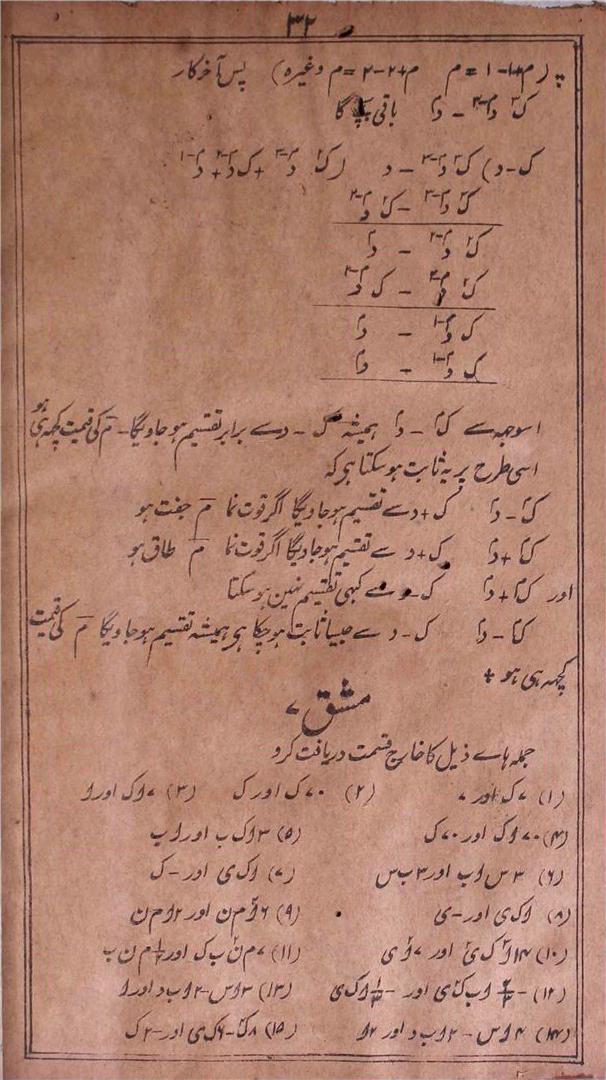 ۳۲
(م+۱-۱=م م+۲-۲=م وغیرہ) پس آخرکار
ک^۳ د^(م-۳) - د^م باقی گا
ک-د) ک^۳ د^(م-۳) - د (ک^۲ د^(م-۳) + ک د^(م-۲) + د^(م-۱)
ک^۳ د^(م-۳) - ک^۲ د^(م-۲)
ک^۲ د^(م-۲) - د^م
ک^۲ د^(م-۲) - ک د^(م-۱)
ک د^(م-۱) - د^م
ک د^(م-۱) - د^م
اسوجہ سے ک^م - د^م ہمیشہ ک - د سے برابر تقسیم ہو جاویگا - م کی قیمت کچھہ ہی ہو
اسی طرح پر یہ ثابت ہو سکتا ہی کہ
ک^م - د^م ک + د سے تقسیم ہو جاویگا اگر قوت نما م جفت ہو
ک^م + د^م ک + د سے تقسیم ہو جاویگا اگر قوت نما م طاق ہو
اور ک^م + د^م ک - د سے کبھی تقسیم نہین ہو سکتا
ک^م - د^م ک - د سے جیسا ثابت ہو چکا ہی ہمیشہ تقسیم ہو جاویگا م کی قیمت
کچھہ ہی ہو +
مشق ۷
جملہ ہاے ذیل کا خارج قسمت دریافت کرو
(۱) ۷ک اور ۷ (۲) ۷۰ک اور ک (۳) ۷اک اور ا
(۴) ۷۰اک اور ۷۰ک (۵) ۳اک ب اور اب
(۶) ۳س اب اور ۳ب س (۷) اک ی اور -ک
(۸) اک ی اور -ی (۹) ۶ا م ن اور ۲ا م ن
(۱۰) ۱۴ا ک ی اور ۷ا ی (۱۱) ۷م ن ب ک اور م ن ب
(۱۲) اب ک ی اور اک ی (۱۳) ۳اس-۲اب د اور ا
(۱۴) ۴اس-۲اب د اور ۲ا (۱۵) ۸ک-۶ک ی اور -۲ک